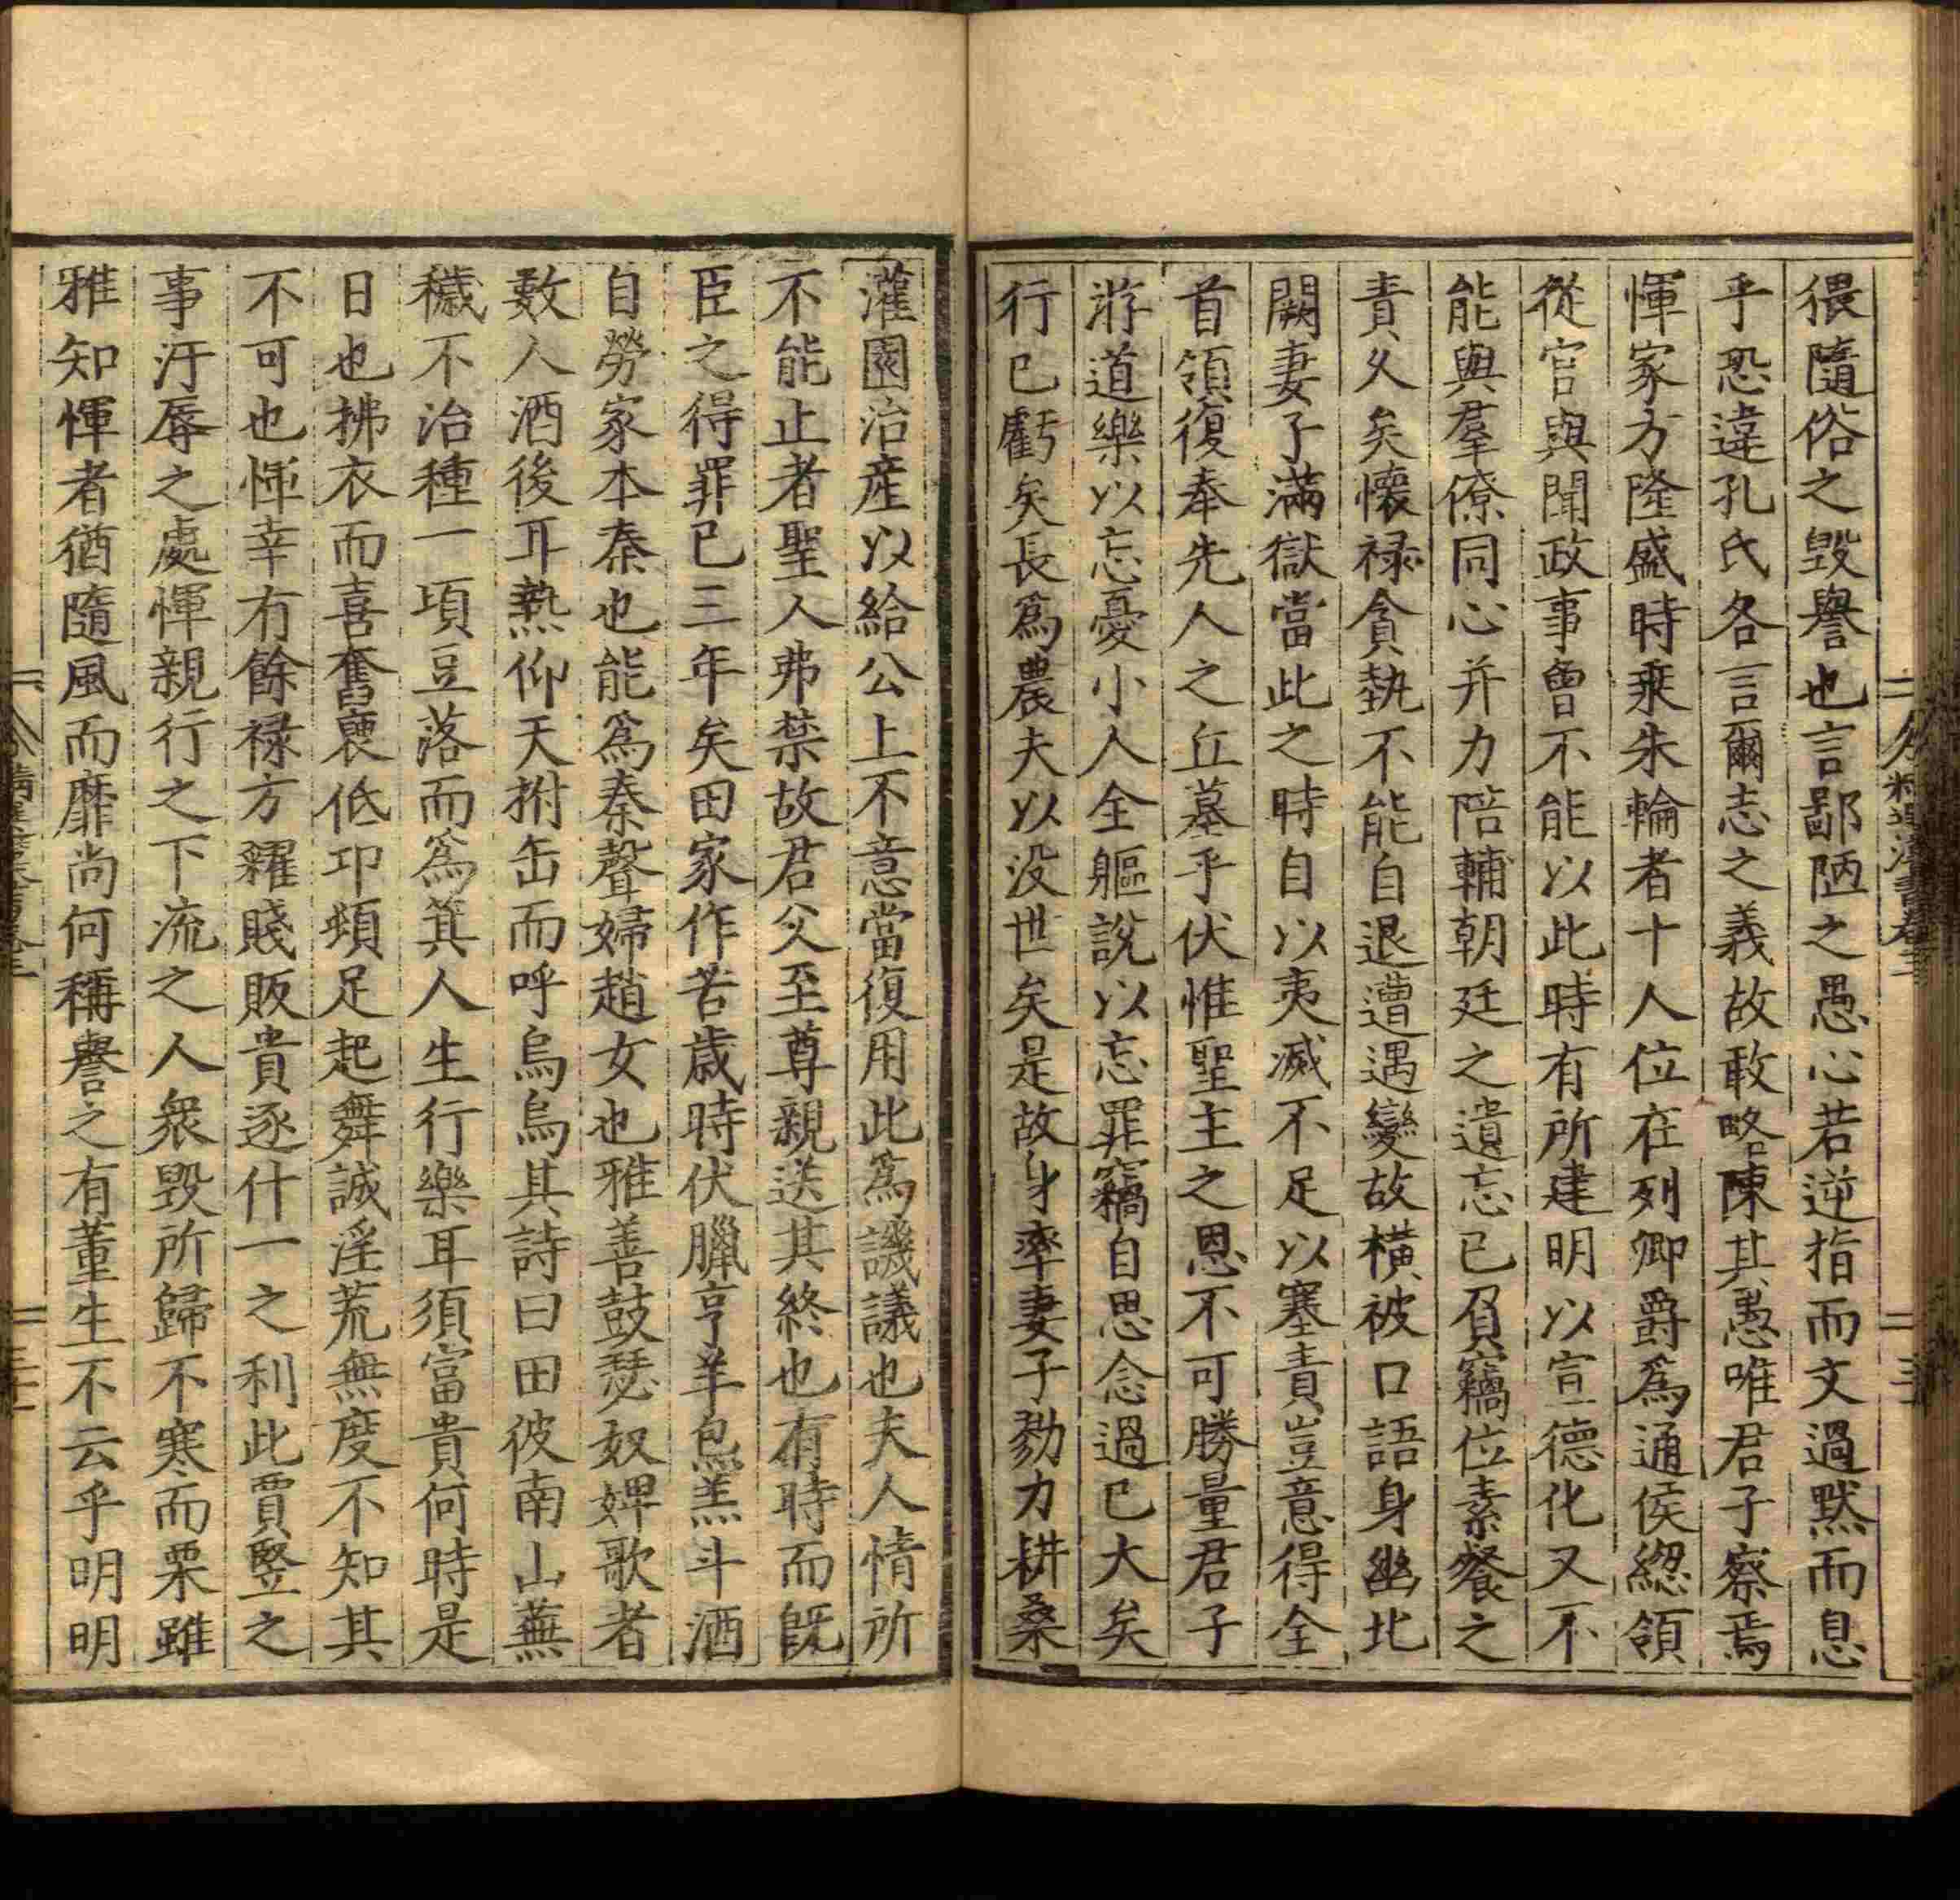 猥隨俗之毀譽也言鄙陋之愚心若逆指而文過默而息
乎恐違孔氏各言爾志之義故敢略陳其愚唯君子察焉
惲家方隆盛時乘朱輪者十人位在列卿爵爲通侯緫領
從官與聞政事曾不能以此時有所建明以宣德化又不
能與羣僚同心并力陪輔朝廷之遺忘已負竊位素餐之
責久矣懷祿貪埶不能自退遭遇變故橫被口語身幽北
闕妻子滿獄當此之時自以夷滅不足以塞責豈意得全
首領復奉先人之丘墓乎伏惟聖主之恩不可勝量君子
游道樂以忘憂小人全軀說以忘罪竊自思念過已大矣
行已虧矣長爲農夫以没世矣是故身率妻子勠力耕桑
灌園治產以給公上不意當復用此爲譏議也夫人情所
不能止者聖人弗禁故君父至尊親送其終也有時而旣
臣之得罪已三年矣田家作苦歲時伏臘亨羊炰羔斗酒
自勞家本秦也能爲秦聲婦趙女也雅善鼓瑟奴婢歌者
數人酒後耳熱仰天拊缶而呼烏烏其詩曰田彼南山蕪
穢不治種一頃豆落而爲萁人生行樂耳須富貴何時是
日也拂衣而喜奮褎低卬頓足起舞誠淫荒無度不知其
不可也惲幸有餘祿方糴賤販貴逐什一之利此賈豎之
事汙辱之處惲親行之下流之人衆毀所歸不寒而栗雖
雅知惲者猶隨風而靡尚何稱譽之有董生不云乎明明